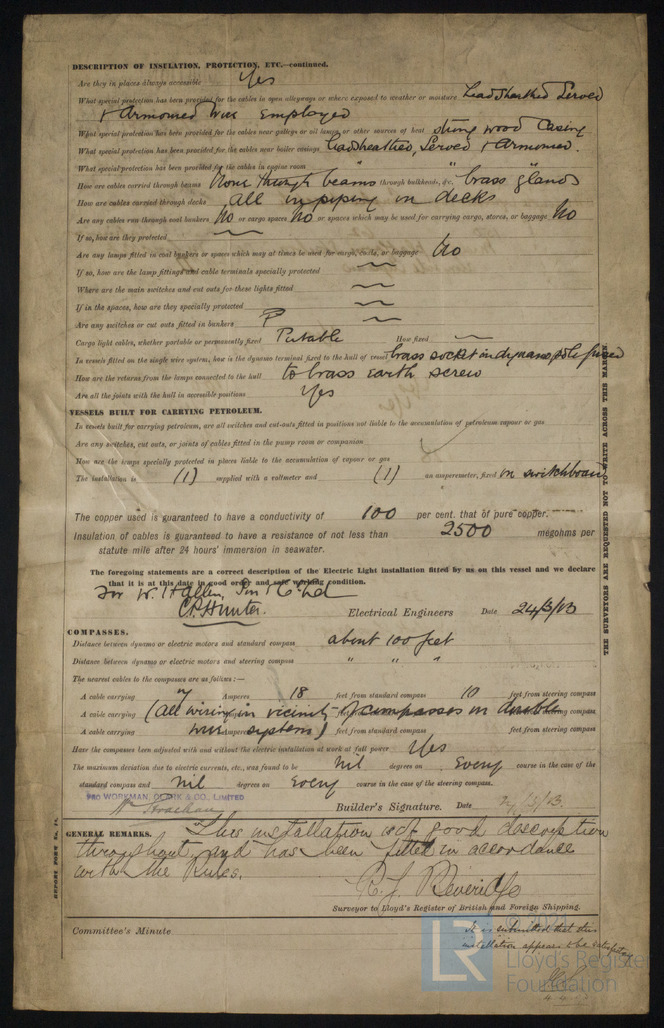 DESCRIPTION OF INSULATION, PROTECTION, ETC.—continued.
Are they in places always accessible Yes
What special protection has been provided for the cables in open alleyways or where exposed to weather or moisture Lead sheathed Served
& Armoured was employed
What special protection has been provided for the cables near galleys or oil lamps or other sources of heat strong wood Casing
What special protection has been provided for the cables near boiler casings leadsheathed, Served & Armoured.
What special protection has been provided for the cables in engine room " "
How are cables carried through beams None through beams through bulkheads, &c. brass glands
How are cables carried through decks all in piping in decks
Are any cables run through coal bunkers No or cargo spaces No or spaces which may be used for carrying cargo, stores, or baggage No
If so, how are they protected —
Are any lamps fitted in coal bunkers or spaces which may at times be used for cargo, coals, or baggage No
If so, how are the lamp fittings and cable terminals specially protected —
Where are the main switches and cut outs for these lights fitted —
If in the spaces, how are they specially protected —
Are any switches or cut outs fitted in bunkers —
Cargo light cables, whether portable or permanently fixed Portable How fixed —
In vessels fitted on the single wire system, how is the dynamo terminal fixed to the hull of vessel brass socket in dynamo pole
How are the returns from the lamps connected to the hull to brass earth screw
Are all the joints with the hull in accessible positions Yes
VESSELS BUILT FOR CARRYING PETROLEUM.
In vessels built for carrying petroleum, are all switches and cut-outs fitted in positions not liable to the accumulation of petroleum vapour or gas
Are any switches, cut outs, or joints of cables fitted in the pump room or companion
How are the lamps specially protected in places liable to the accumulation of vapour or gas
The installation is (1) supplied with a voltmeter and (1) an amperemeter, fixed on switchboard
The copper used is guaranteed to have a conductivity of 100 per cent. that of pure copper.
Insulation of cables is guaranteed to have a resistance of not less than 2500 megohms per
statute mile after 24 hours' immersion in seawater.
The foregoing statements are a correct description of the Electric Light installation fitted by us on this vessel and we declare
that it is at this date in good order and safe working condition.
For W. H. Allen, Son & Co Ld
C.P. Hunter. Electrical Engineers Date 24/3/13
COMPASSES.
Distance between dynamo or electric motors and standard compass about 100 feet
Distance between dynamo or electric motors and steering compass " " "
The nearest cables to the compasses are as follows:—
A cable carrying Amperes 18 feet from standard compass 10 feet from steering compass
A cable carrying (all wiring in vicinity of compasses on double
A cable carrying wire system) Amperes feet from standard compass feet from steering compass
Have the compasses been adjusted with and without the electric installation at work at full power Yes
The maximum deviation due to electric currents, etc., was found to be nil degrees on Every course in the case of the
standard compass and nil degrees on Every course in the case of the steering compass.
PRO WORKMAN, CLARK & CO., LIMITED
Builder's Signature. Date
GENERAL REMARKS. This installation is of good description
throughout, and has been fitted in accordance
with the Rules.
R. J. Beveridge
Surveyor to Lloyd's Register of British and Foreign Shipping.
Committee's Minute It is submitted that this
installation appears to be satisfactory
THE SURVEYORS ARE REQUESTED NOT TO WRITE ACROSS THIS MARGIN.
REPORT FORM No. 14.
© 2021
LR
Lloyd's Register
Foundation